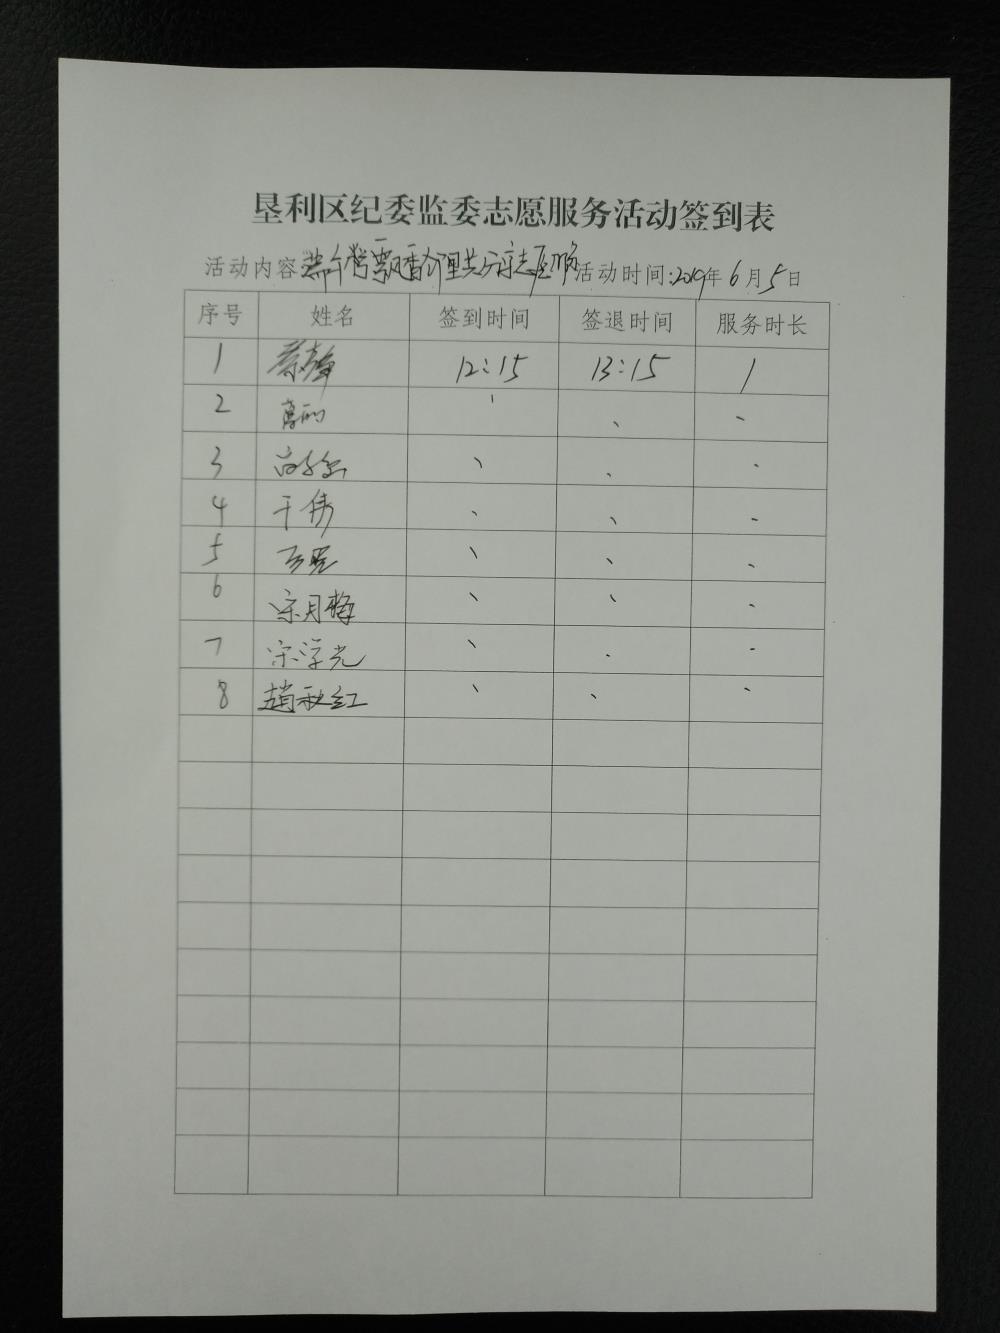 垦利区纪委监委志愿服务活动签到表
活动内容 活动时间:2019年6月5日
序号 姓名 签到时间 签退时间 服务时长
1 12:15 13:15 1
2 、 、 、
3 、 、 、
4 于伟 、 、 、
5 、 、 、
6 宋月梅 、 、 、
7 宋淳光 、 、 、
8 趙秋红 、 、 、